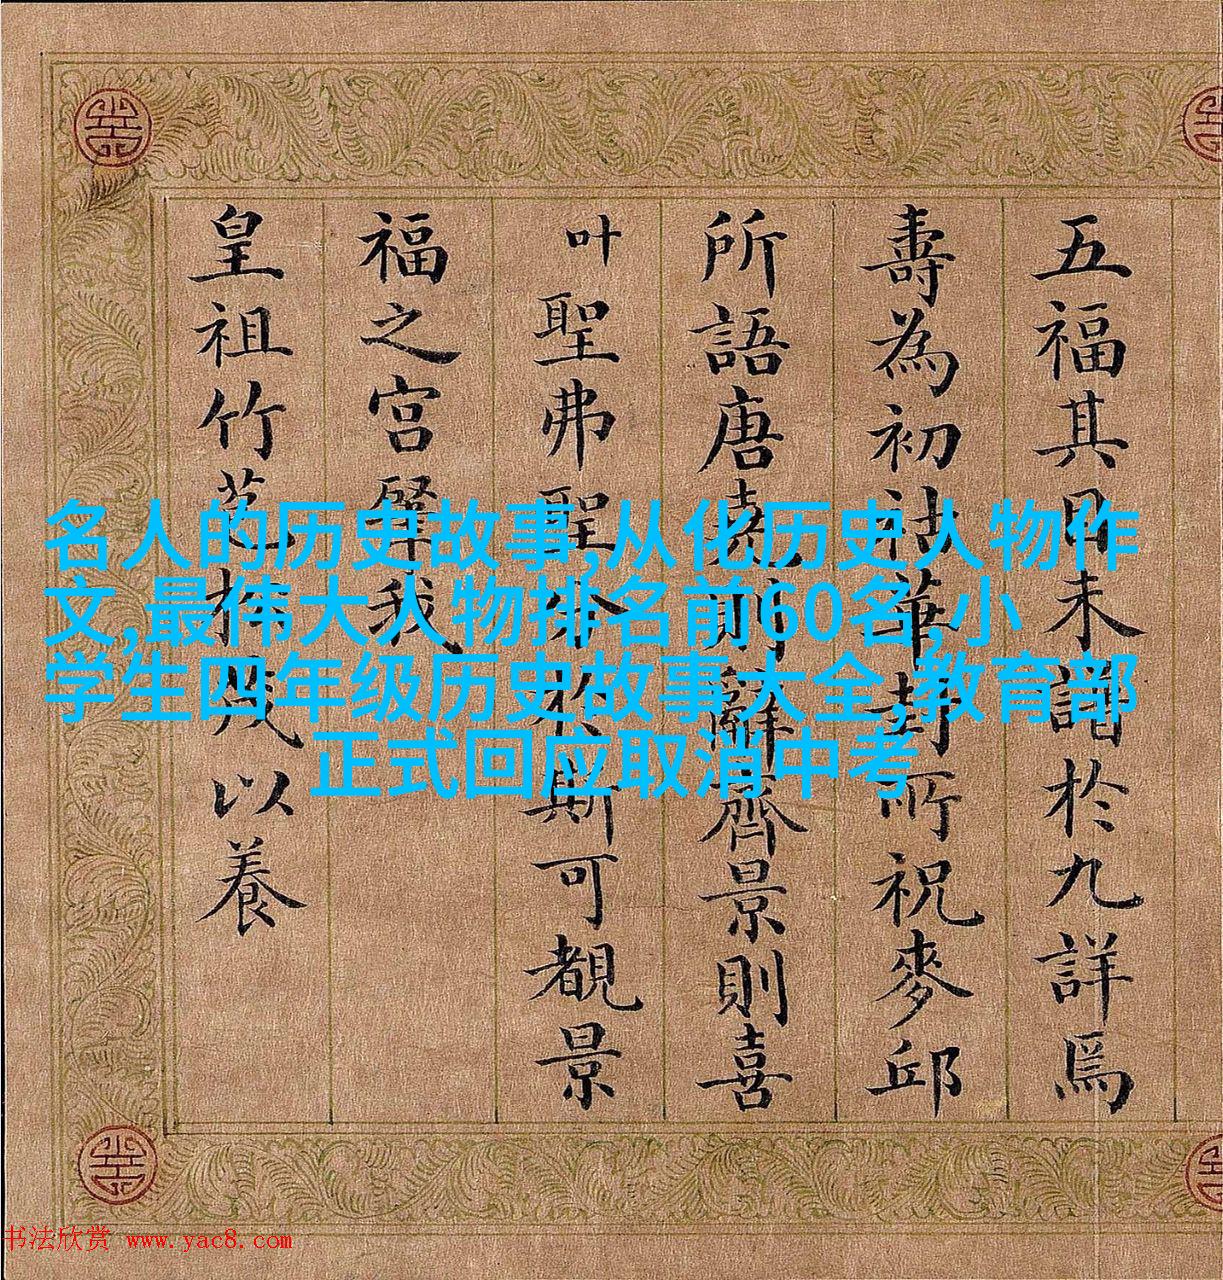 五福其日未於九詳焉
壽為初祜華封所祝麥邱
所語唐堯則辭齊景則喜
叶聖弗聖分於斯可覩景
福之宫肇我
皇祖竹苞松茂以養
名人的历史故事,从化历史人物作
文,最伟大人物排名前60名,小
学生四年级历史故事大全,教育部
正式回应取消中考
书法欣赏 www.yac8.com